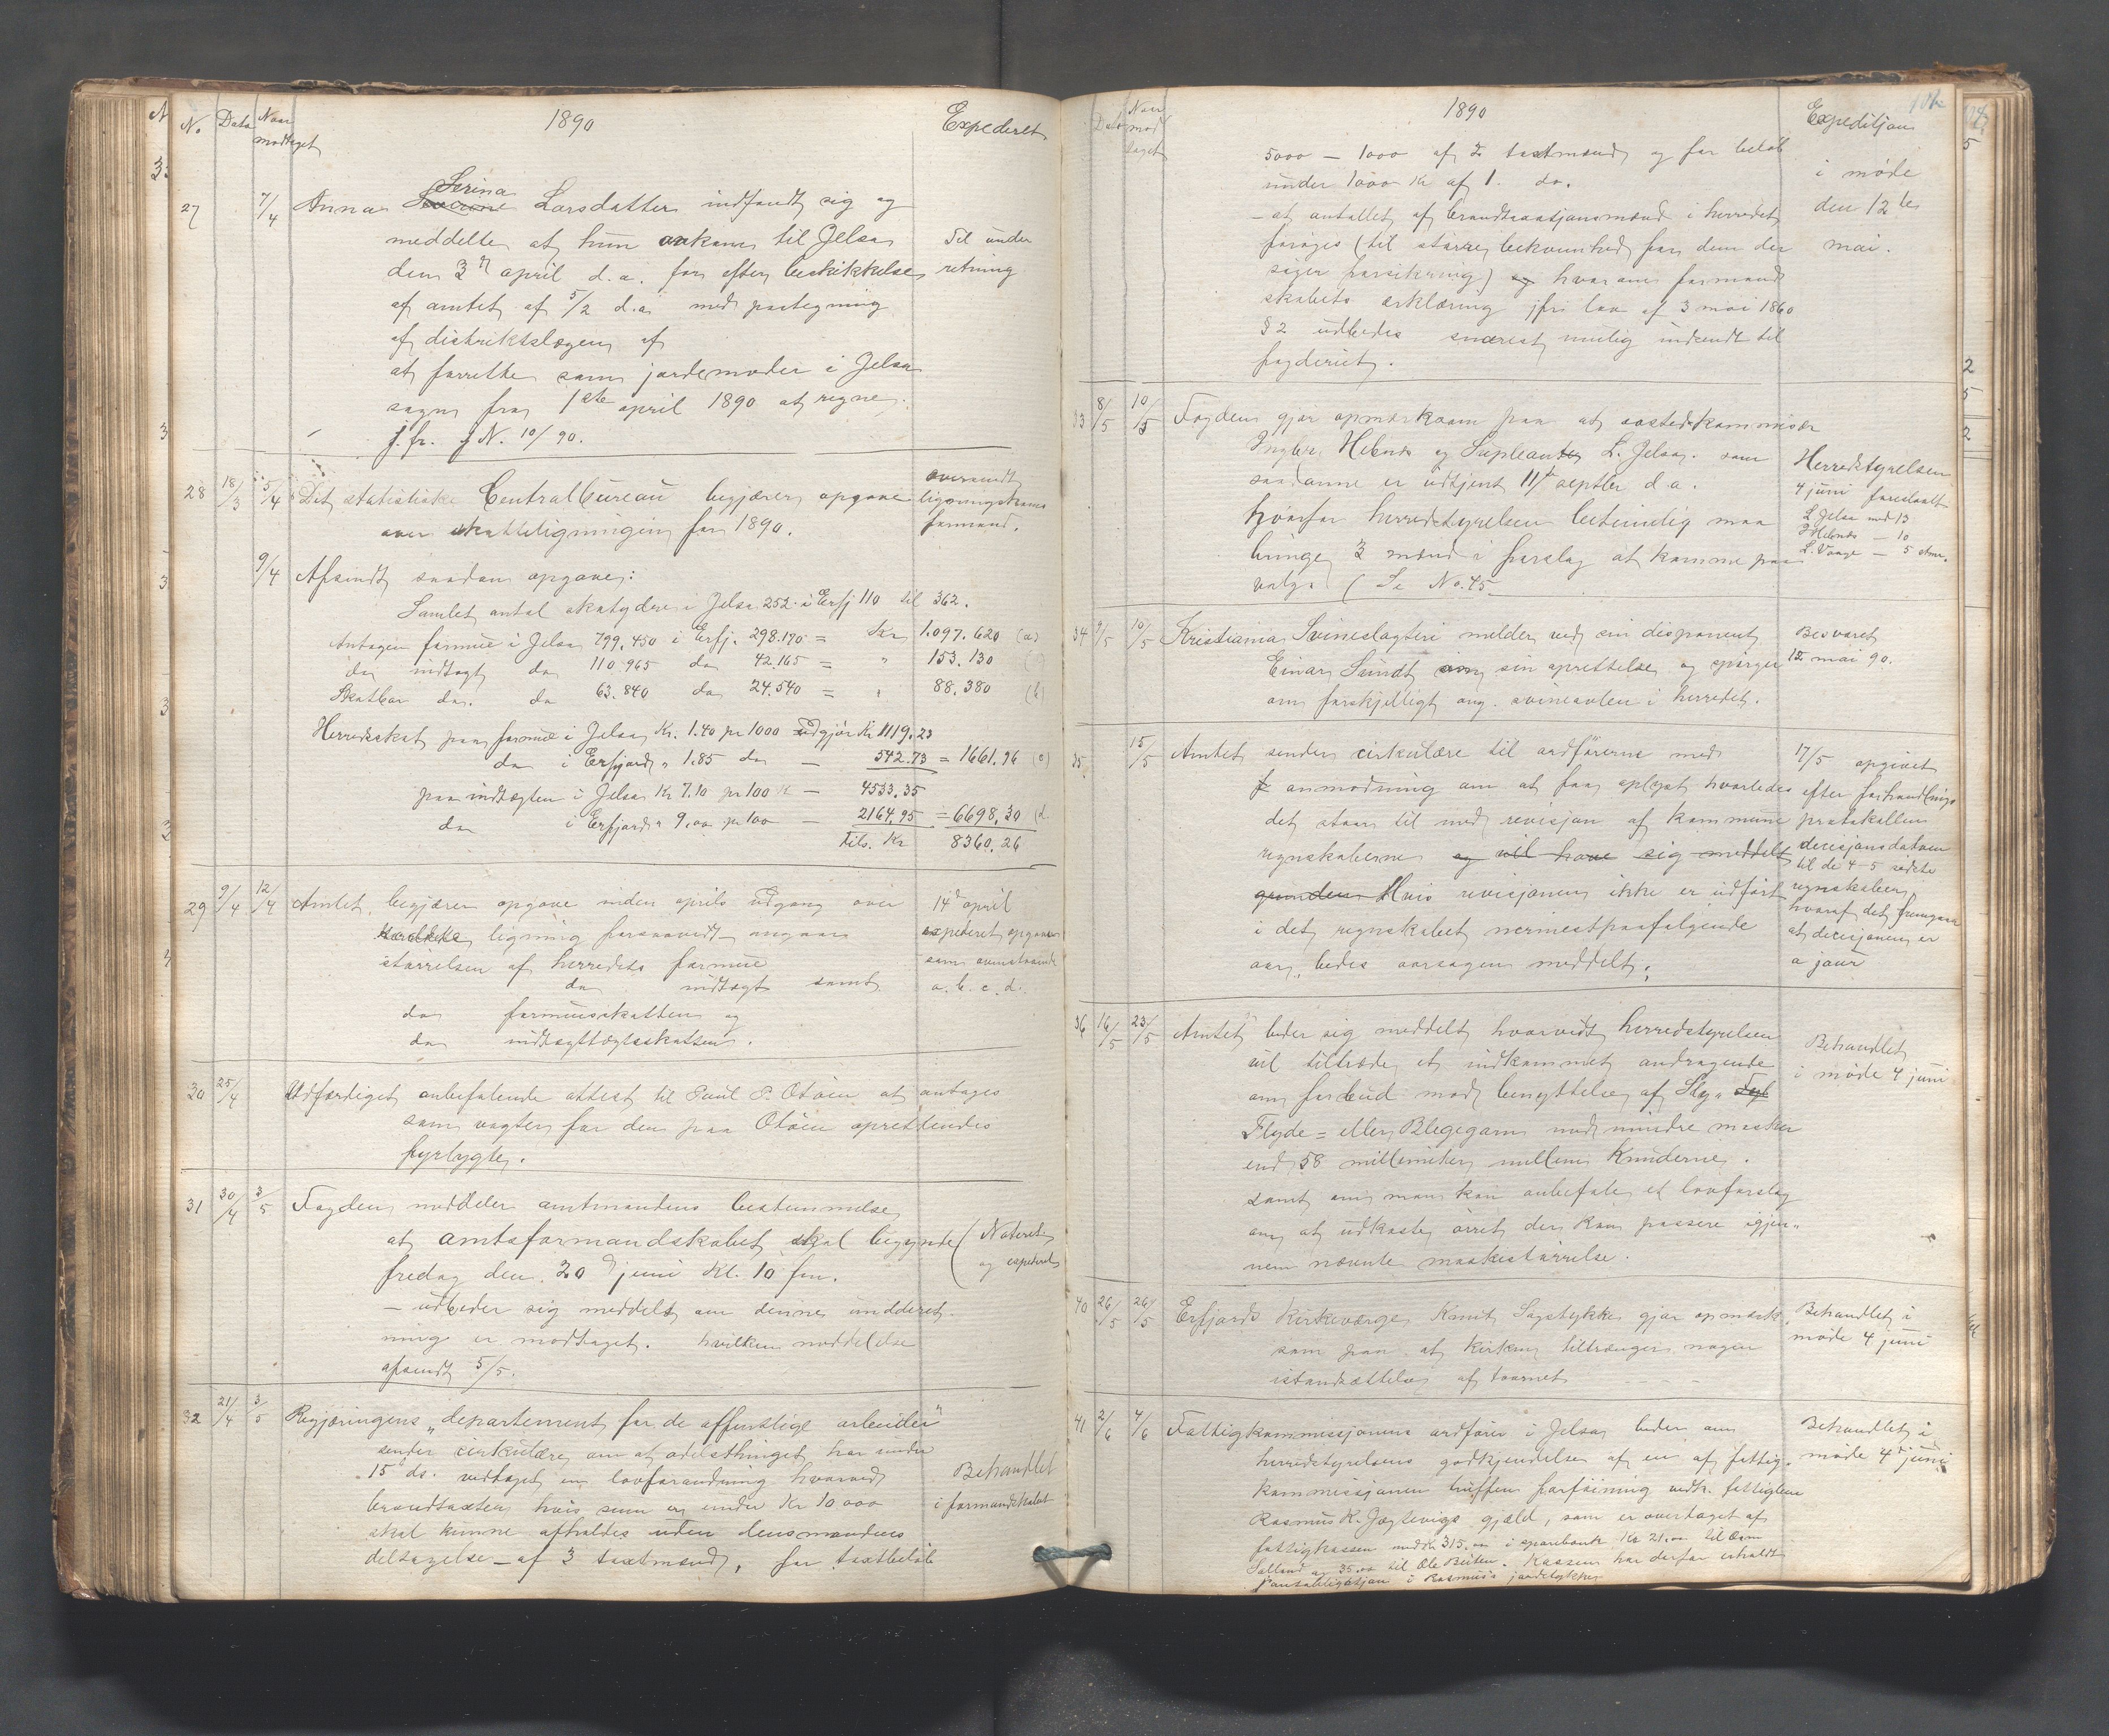 No. Dato Naar modtaget 1890 Expederet
27 7/4 Anna Severine Serina Larsdatter indfandt sig og
meddelte at hun ankom til Jelsa
den 3die april d.a. for efter beskikkelse
af amtet af 5/2 d.a. med paategning
af distriktslægen af
at forrette som jordemoder i Jelsa
sogn fra 1ste april 1890 at regne.
j.fr. j N. 10/90.
Til under
retning
28 18/3 5/4 Det statistiske Centralbureau begjærer opgave
over skatteligningen for 1890.
oversendt
ligningskoms
formand.
9/4 Afsendt saadan opgave:
Samlet antal skatydere i Jelsa 252 i Erfj 110 til 362.
Antagen formue i Jelsa 799.450 i Erfj. 298.170 = Kr 1.097.620 (a)
do indtægt do 110.965 do 42.165 = " 153.130
Skatbar do. do 63.840 do 24.540 = " 88.380 (b)
Herredsskat paa formue i Jelsa Kr. 1.40 pr 1000 udgjør Kr 1119.23
do i Erfjord " 1.85 do — 542.73 = 1661.96 (c)
paa indtægten i Jelsa Kr 7.10 pr 100 K — 4533.35
do i Erfjord " 9,00 pr 100 — 2164.95 = 6698,30 (d.
tils. Kr 8360.26
29 9/4 12/4 Amtet begjærer opgave inden aprils udgang over
ligning forsaavidt angaar
størrelsen af herredets formue
do indtægt samt
do formuesskatten og
do indtægtsskatten.
14de april
expederet opgaver
som ovenstaaende
a. b. c. d.
30 25/4 Udfærdiget anbefalende attest til Paul P. Otøen at antages
som vogter for den paa Otøen oprettendes
fyrlygte.
31 30/4 3/5 Fogden meddeler amtmandens bestemmelse
at amtsformandskabet skal begynde
fredag den 20de juni kl. 10 fm.
— udbeder sig meddelt om denne underret-
ning er modtaget. hvilken meddelelse
afsendt 5/5.
( Noteret
og expederet
32 21/4 3/5 Regjeringens "departement for de offentlige arbeider"
sender cirkulære om at odelsthinget har under
15de ds. vedtaget en lovforandring hvorved
brandtaxter hvis sum er under Kr 10 000
skal kunne afholdes uden lensmandens
deltagelse — af 3 taxtmænd, for taxtbeløb
Behandlet
i formandskabet
Dato Naar modtaget 1890 Expedition
5000 — 1000 af 2 taxtmænd og for beløb
under 1000 Kr af 1. do.
— at antallet af brandtaxtjonsmænd i herredet
forøges (til større bekvemhed for dem der
søger forsikring) og hvorom formand
skabets erklæring jfr lov af 3 mai 1860
§ 2 udbedes snarest mulig indsendt til
fogderiet.
i møde
den 12te
mai.
33 8/5 10/5 Fogden gjør opmerksom paa at aastedskommisær
Ingebr. Hebnes og Supleanten L. Jelsa. som
saadanne er udtjent 11te septbr d.a.
hvorfor herredstyrelsen betimelig maa
bringe 3 mænd i forslag at komme paa
valg. ( Se No. 45.
Herredstyrelsen
4 juni foreslaaet
L Jelsa med 13
I Hebnes — 10
L. Vaage — 5 stmr.
34 9/5 10/5 Kristiania Svineslagteri melder ved sin disponent
Einar Sundt om sin oprettelse og spørger
om forskjelligt ang. svineavlen i herredet.
Besvaret
12 mai 90.
35 15/5 Amtet sender cirkulære til ordførerne med
f anmodning om at faa oplyst hvorledes
det staar til med revisjon af kommune
regnskaberne og vil have sig meddelt
grunden Hvis revisjonen ikke er udført
i det regnskabet nærmestpaafølgende
aar, bedes aarsagen meddelt.
17/5 opgivet
efter forhandlings
protokollen
decisjonsdatoen
til de 4-5 sidste
regnskaber,
hvoraf det fremgaar
at decisjonen er
a jour
36 16/5 23/5 Amtet beder sig meddelt hvorvidt herredstyrelsen
vil tiltræde et indkommet andragende
om forbud mod benyttelse af
Flyde = eller Blegegarn med mindre masker
end 58 millimeter mellem Knuderne.
samt om man kan anbefale et lovforslag
om at udkaste ørret der kan passere igjen-
nem nævnte maskestørrelse.
Behandlet
i møde 4 juni
40 26/5 26/5 Erfjords Kirkeværge Knut Sagstykke gjør opmærk
som paa at Kirken tiltrænger nogen
istandsættelse af taarnet
Behandlet i
møde 4 juni
41 2/6 4/6 Fattigkommissjonens ordfører i Jelsa beder om
herredstyrelsens godkjendelse af en af fattig-
kommissjonen truffen forføining vedk. fattiglem
Rasmus K. Jøgtevigs gjæld, som er overtaget af
fattigkassen med Kr 315.00 i sparebank Kr 21.00 til
og 35.00 til Ole Beiten. Kassen har derfor erholdt
pantobligation i Rasmus's jordstykke
Behandlet i
møde 4de juni